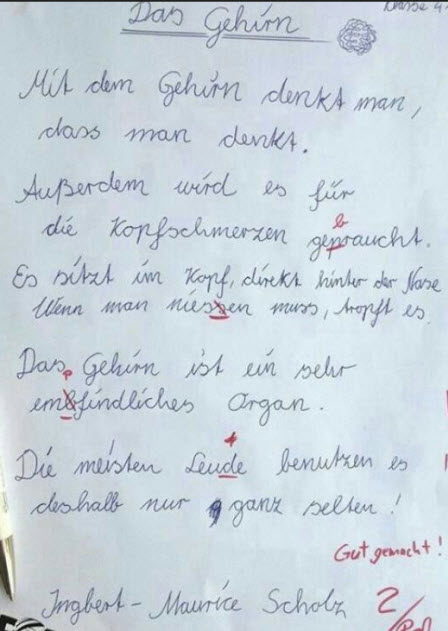 Das Gehirn
Klasse 4
Mit dem Gehirn denkt man,
dass man denkt.
Außerdem wird es für
b
die Kopfschmerzen gepraucht.
Es sitzt im Kopf, direkt hinter der Nase
Wenn man niessen muss, tropft es.
Das Gehirn ist ein sehr
p
embfindliches Organ.
t
Die meisten Leude benutzen es
deshalb nur ganz selten!
Gut gemacht!
Ingbert-Maurice Scholz 2